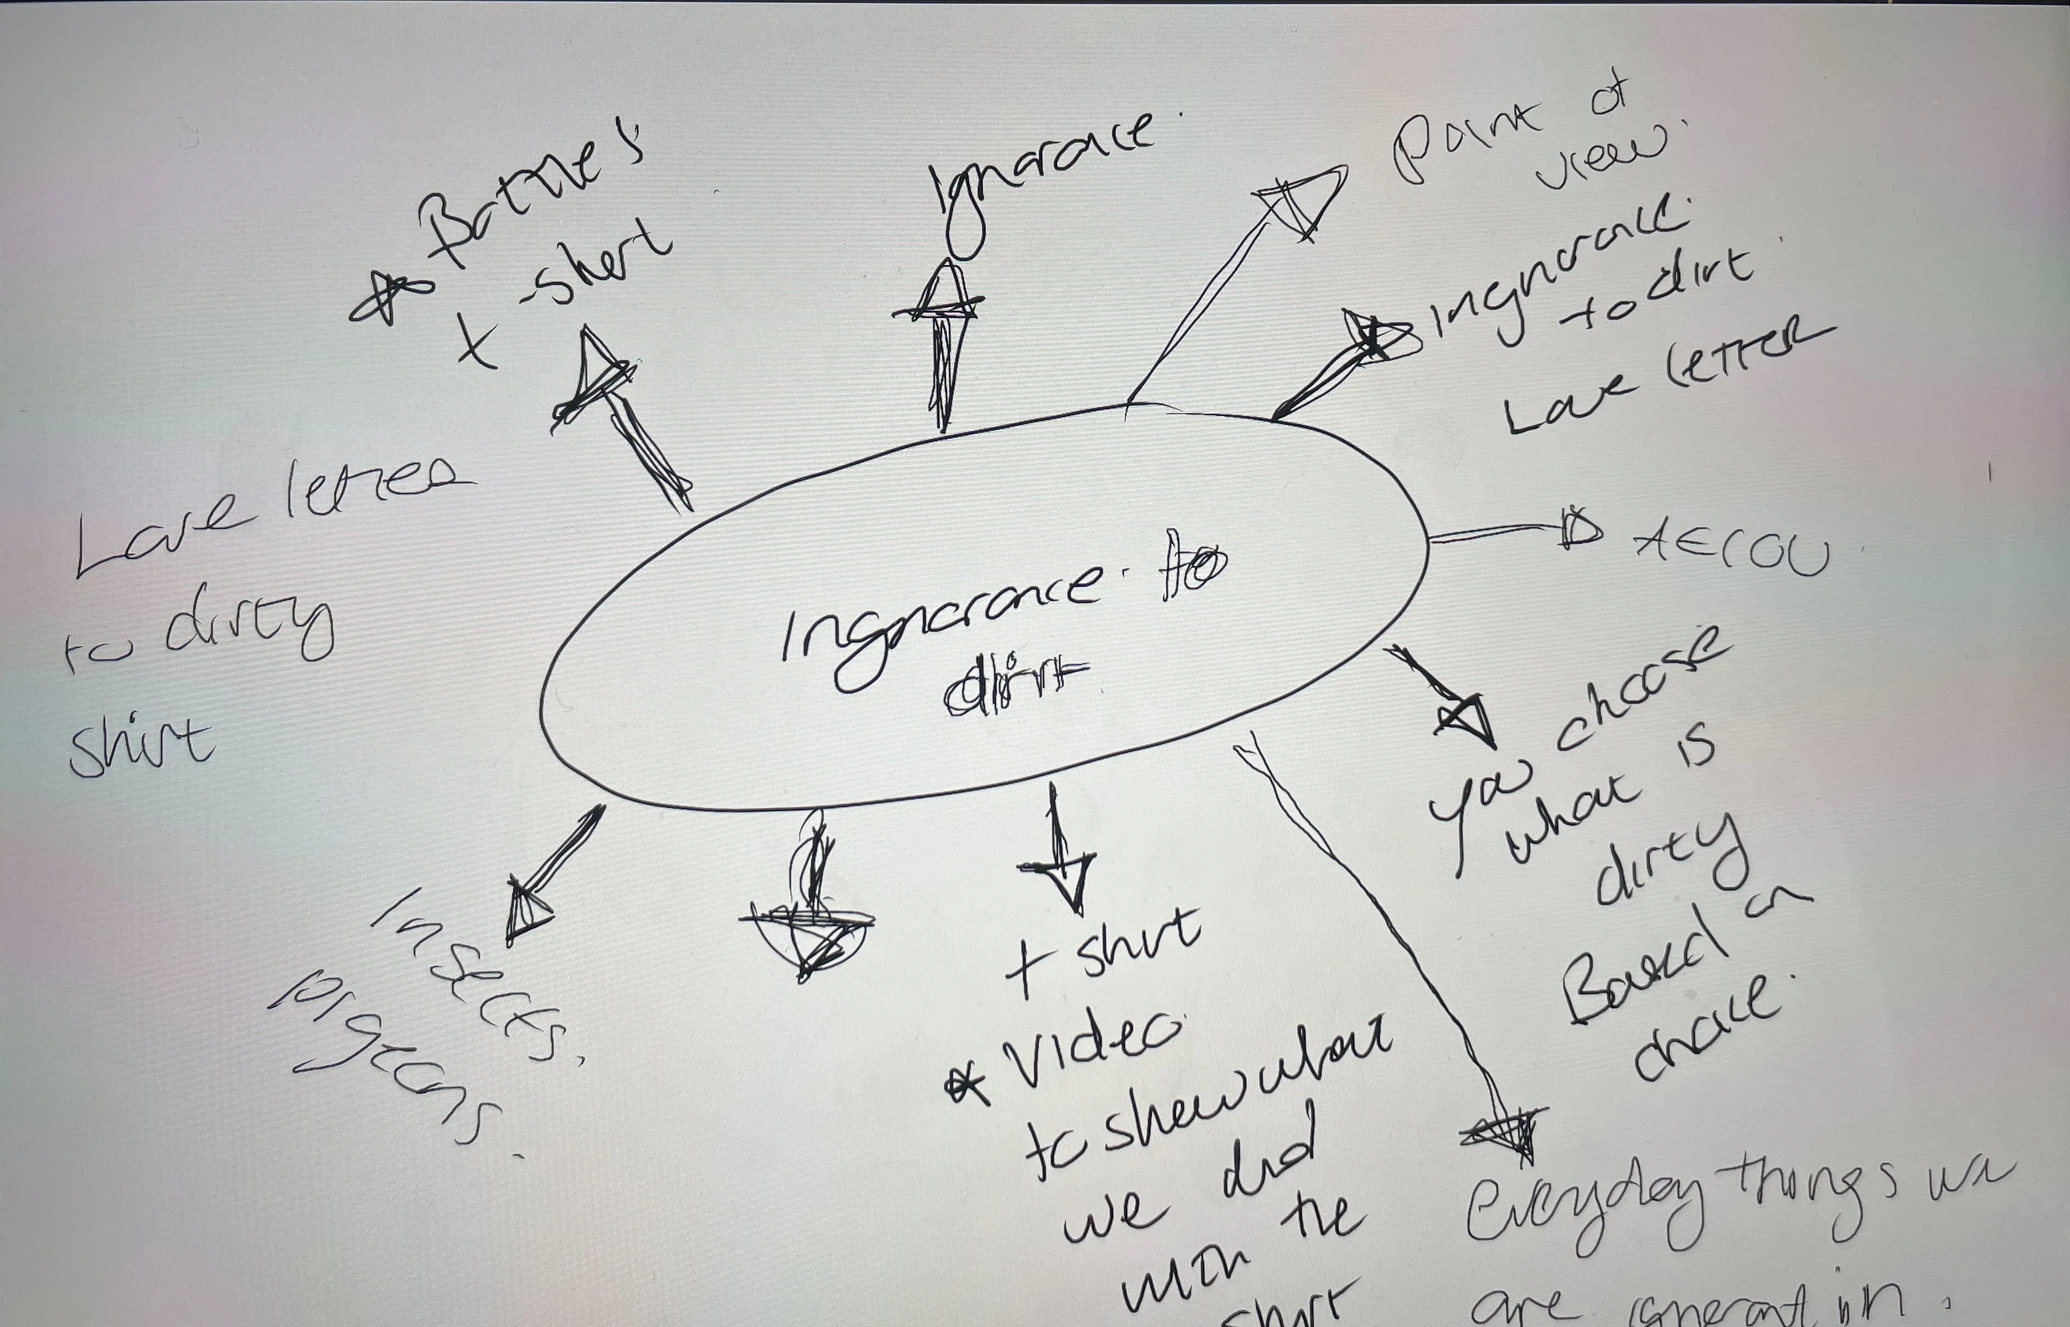 Ingnorance to
dirt
Ignorance.
Point of
view.
Ingnorance
to dirt.
Love letter
you choose
what is
dirty
Based on
choice.
everyday things we
are ignorant in.
t shirt
* Video
to show what
we did
with the
shirt
Insects.
pigeons.
Love letter
to dirty
shirt
t-shirt